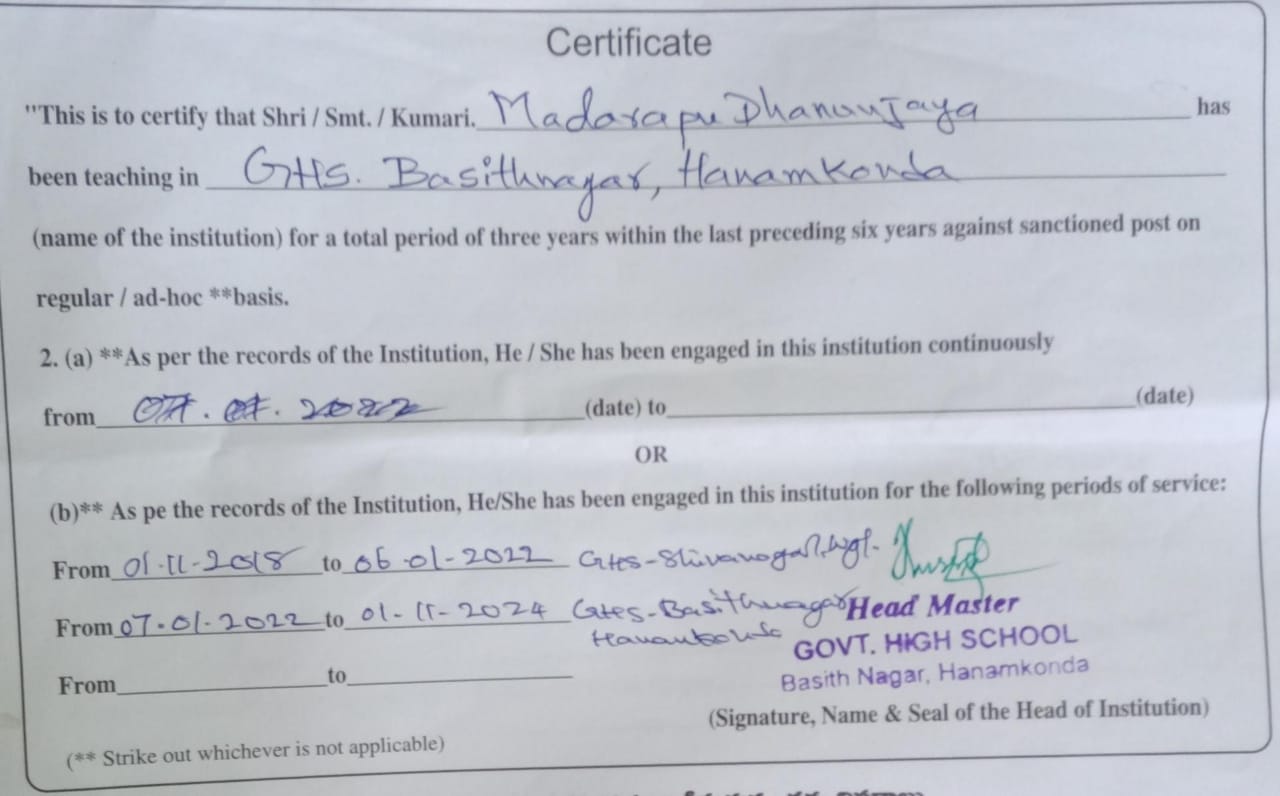 Certificate
"This is to certify that Shri / Smt. / Kumari. Madarapu Dhanunjaya has
been teaching in GHS. Basithnagar, Hanamkonda
(name of the institution) for a total period of three years within the last preceding six years against sanctioned post on
regular / ad-hoc **basis.
2. (a) **As per the records of the Institution, He / She has been engaged in this institution continuously
from 07. 01. 2022 (date) to (date)
OR
(b)** As pe the records of the Institution, He/She has been engaged in this institution for the following periods of service:
From 01-11-2018 to 06-01-2022 GHS-Shivanagar, Wgl.
From 07-01-2022 to 01-11-2024 GHS-Basithnagar
Hanamkonda
Head Master
GOVT. HIGH SCHOOL
Basith Nagar, Hanamkonda
From to
(Signature, Name & Seal of the Head of Institution)
(** Strike out whichever is not applicable)